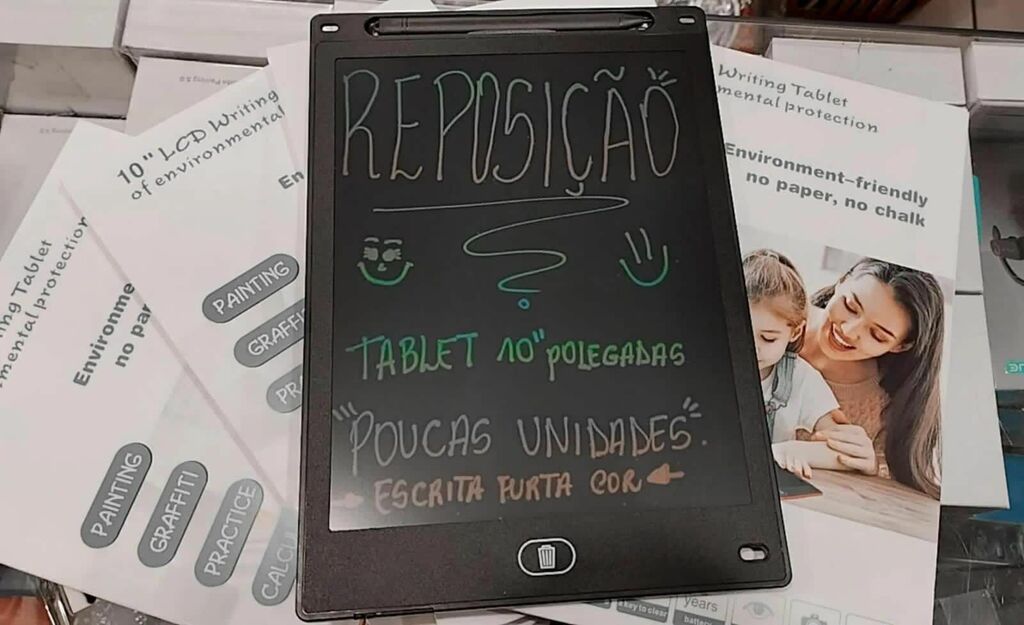 REPOSIÇÃO
TABLET 10" POLEGADAS
"POUCAS UNIDADES".
ESCRITA FURTA COR
10" LCD Writing
of environmental
En
PAINTING
GRAFFITI
PR
Writing Tablet
mental protection
Environme
no pa
PAINTING
GRAFFITI
PRACTICE
CALCU
Writing Tablet
mental protection
Environment-friendly
no paper, no chalk
key to clear
years
battery